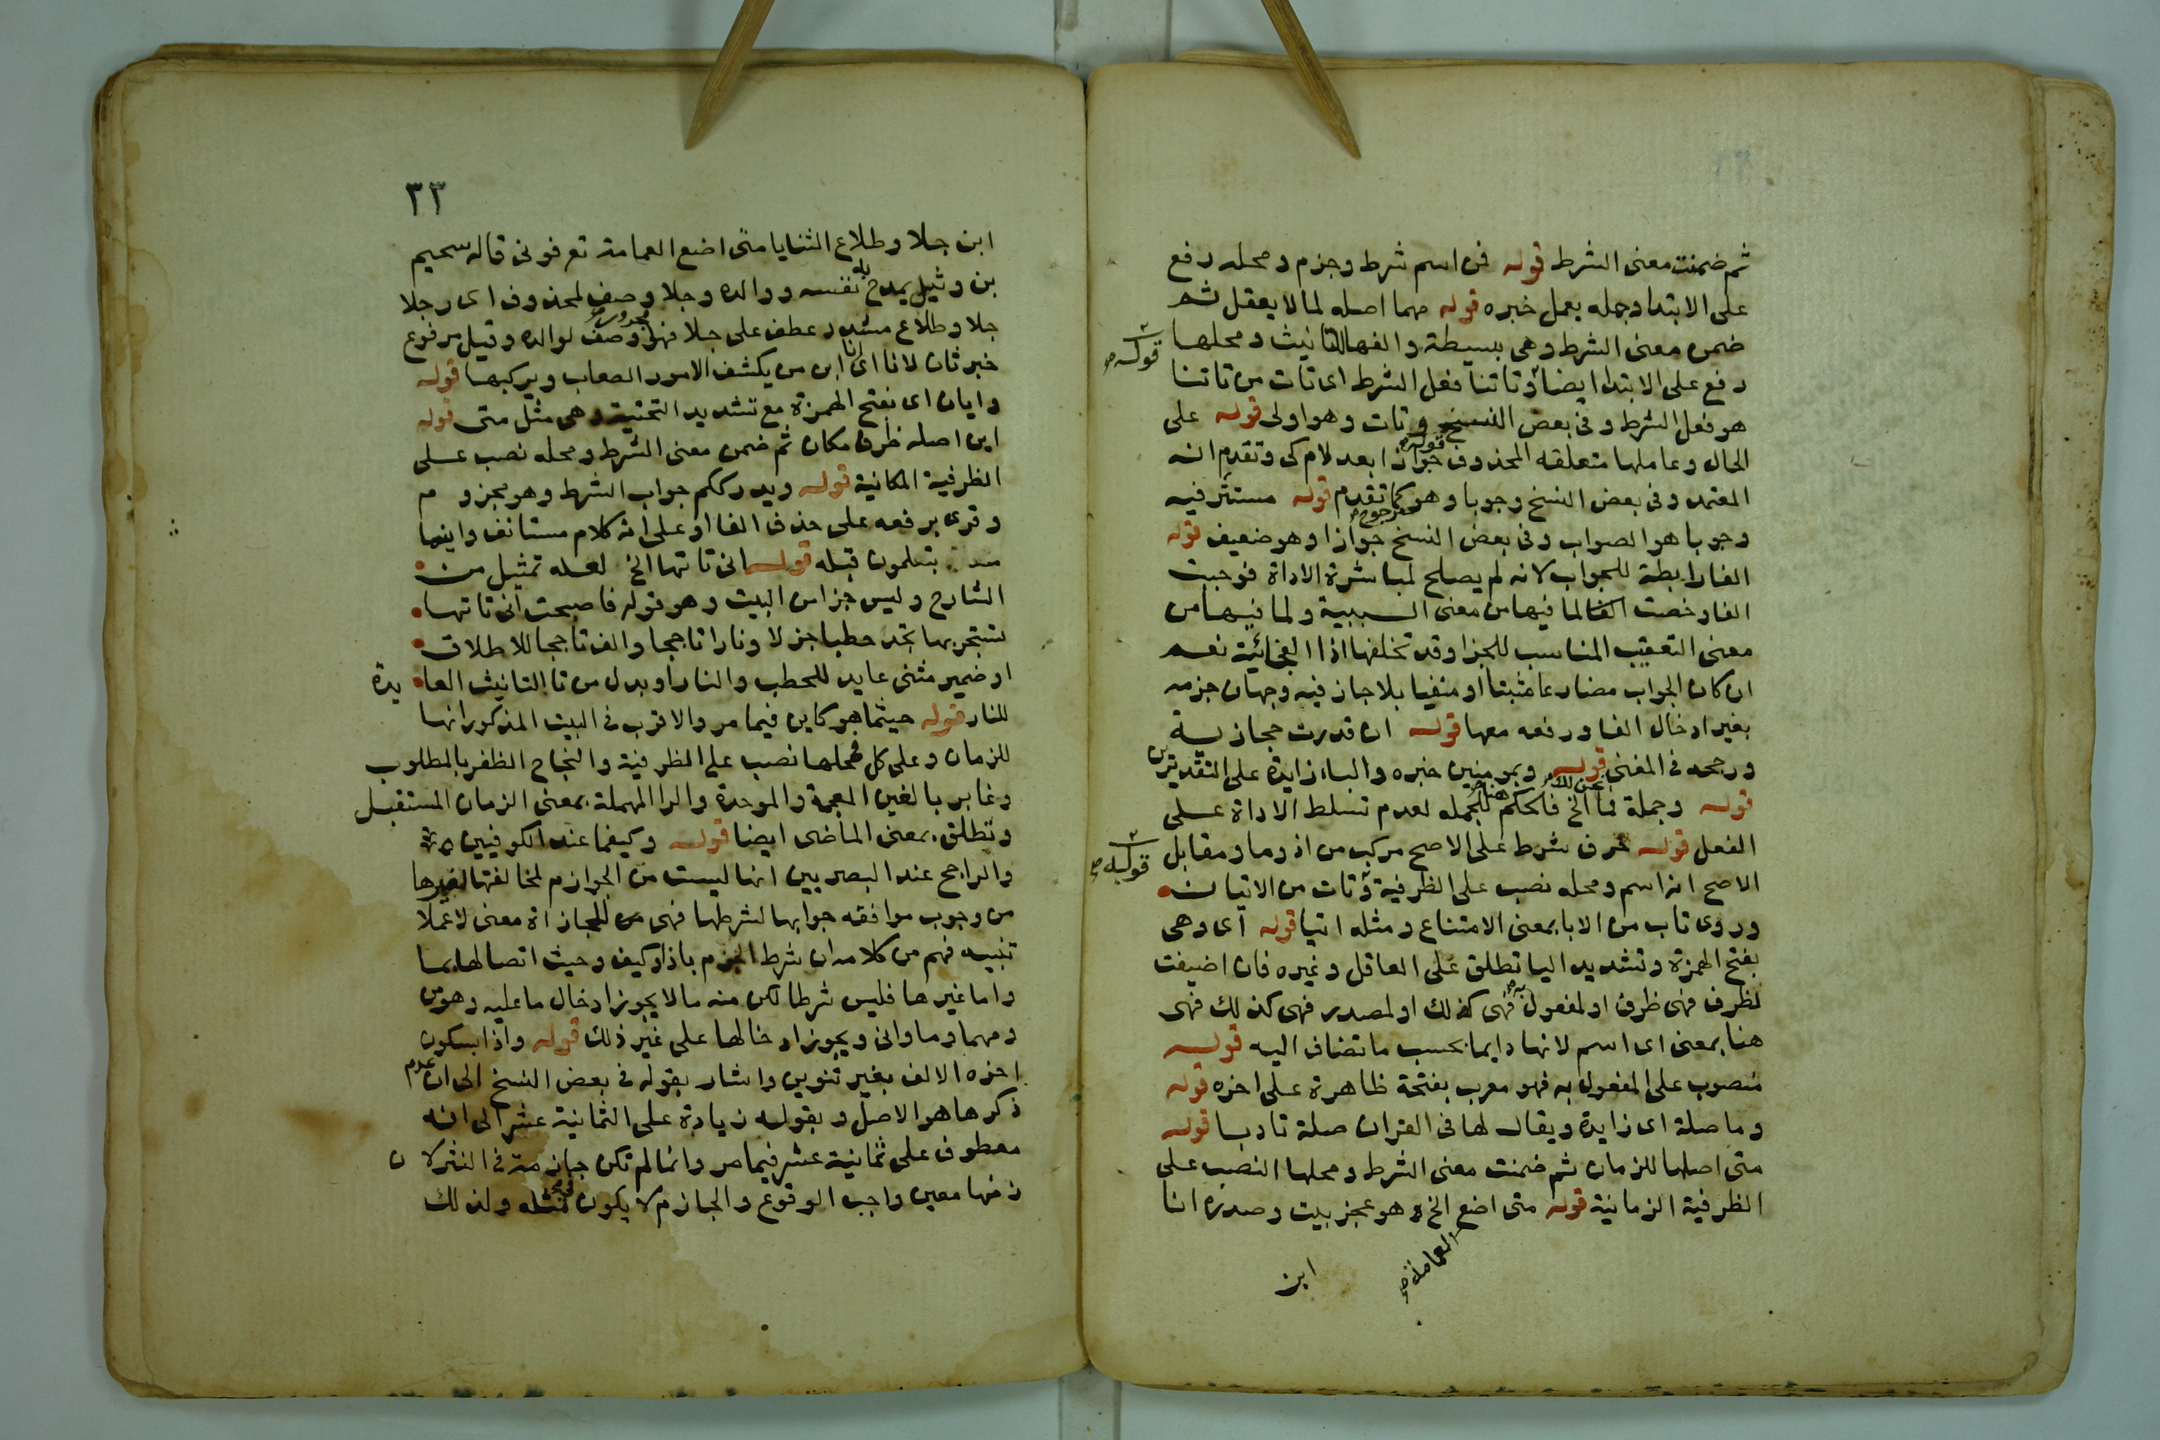 ثم ضمنت معنى الشرط قوله فمن اسم شرط وجزم ومحله رفع
على الابتدا وجمله يعمل خبره قوله مهما اصله لما لا يعقل ثم
ضمن معنى الشرط وهى بسيطة والفها للتانيث ومحلها
قوله صح
رفع على الابتدا ايضا وتاتنا فعل الشرط اى تات من تاتنا
هو فعل الشرط وفى بعض النسخ وتات وهو اولى قوله على
الحال وعاملها متعلقه المحذوف جوازا بعد لام كى وتقدم انه
قوله صح
المعتمد وفى بعض النسخ وجوبا وهو كما تقدم قوله مستتر فيه
مرجوح
وجوبا هو الصواب وفى بعض النسخ جوازا وهو ضعيف قوله
الفا رابطة للجواب لانه لم يصلح لمباشرة الاداة فوجبت
الفا وخصت الفا لما فيها من معنى السببية ولما فيها من
معنى التعقيب المناسب للجزا وقد تخلفها اذا الفجائية نعم
ان كان الجواب مضارعا مثبتا او منفيا بلا جاز فيه وجهان جزمه
بغير ادخال الفا ورفعه معها قوله ان قدرت حجازية
ورجحه فى المغنى قوله وبمومنين خبره والبا زايدة على التقديرين
نحن لك هنا
قوله وجملة فما الخ فالحكم للجمله لعدم تسلط الاداة على
الفعل قوله حرف شرط على الاصح مركب من اذ وما ومقابل
قوله صح
الاصح انه اسم ومحله نصب على الظرفية وتات من الاتيان
وروى تاب من الابا بمعنى الامتناع ومثله اتيا قوله اى وهى
بفتح الهمزة وتشديد اليا تطلق على العاقل وغيره فان اضيفت
لظرف فهى ظرف او لمفعول به فهى كذلك او لمصدر فهى كذلك فهى
هنا بمعنى اى اسم لانها دايما بحسب ما تضاف اليه قوله
منصوب على المفعول به فهو معرب بفتحة ظاهرة على اخره قوله
وما صلة اى زايدة ويقال لها فى القران صلة تادبا قوله
متى اصلها للزمان ثم ضمنت معنى الشرط ومحلها النصب على
الظرفية الزمانية قوله متى اضع الخ وهو عجز بيت وصدره انا
العمامة صح
ابن
٣٣
ابن جلا وطلاع الثنايا متى اضع العمامة تعرفونى قاله سحيم
بن وثيل يمدح به نفسه ووالده وجلا وصف لمحذوف اى رجلا
جلا وطلاع مشدد عطف على جلا فهو وصف لوالده وقيل مرفوع
مجرور
خبر ثان لانا اى انا ابن من يكشف الامور الصعاب ويركبها قوله
وايان اى بفتح الهمزة مع تشديد التحتية وهى مثل متى قوله
اين اصله ظرف مكان ثم ضمن معنى الشرط ومحله نصب على
الظرفية المكانية قوله ويدرككم جواب الشرط وهو مجزوم
وقرى برفعه على حذف الفا او على انه كلام مستانف واينما
بتعلمون قبله قوله انى تاتها الخ لعله تمثيل من
الشارح وليس جزا من البيت وهو قوله فاصبحت انى تاتها
تستجر بها تجد حطبا جزلا ونارا تاججا والف تاججا للاطلاق
او ضمير مثنى عايد للحطب والنار او بدل من تا التانيث العايدة
للنار قوله حيثما هو كاين فيما مر والاقرب فى البيت المذكور انها
للزمان وعلى كل فمحلها نصب على الظرفية والنجاح الظفر بالمطلوب
وغابر بالغين المعجمة والموحدة والرا المهملة بمعنى الزمان المستقبل
وتطلق بمعنى الماضى ايضا قوله وكيفما عند الكوفيين
والراجح عند البصريين انها ليست من الجوازم لمخالفتها لغيرها
من وجوب موافقه جوابها لشرطها فهى من للمجازاة معنى لا عملا
تنبيه فهم من كلامه ان شرط الجزم باذ وكيف وحيث اتصالها بما
واما غيرها فليس شرطا لكن منه ما لا يجوز ادخال ما عليه وهو من
ومهما وما وانى ويجوز ادخالها على غير ذلك قوله واذا بسكون
اخره الالف بغير تنوين واشار بقوله فى بعض النسخ الى ان عدم
ذكرها هو الاصل وبقوله زيادة على الثمانية عشر الى انه
معطوف على ثمانية عشر فيما مر وانما لم تكن جازمة فى النثر لان
زمنها معين واجب الوقوع والجازم لا يكون فى مثله ولذلك